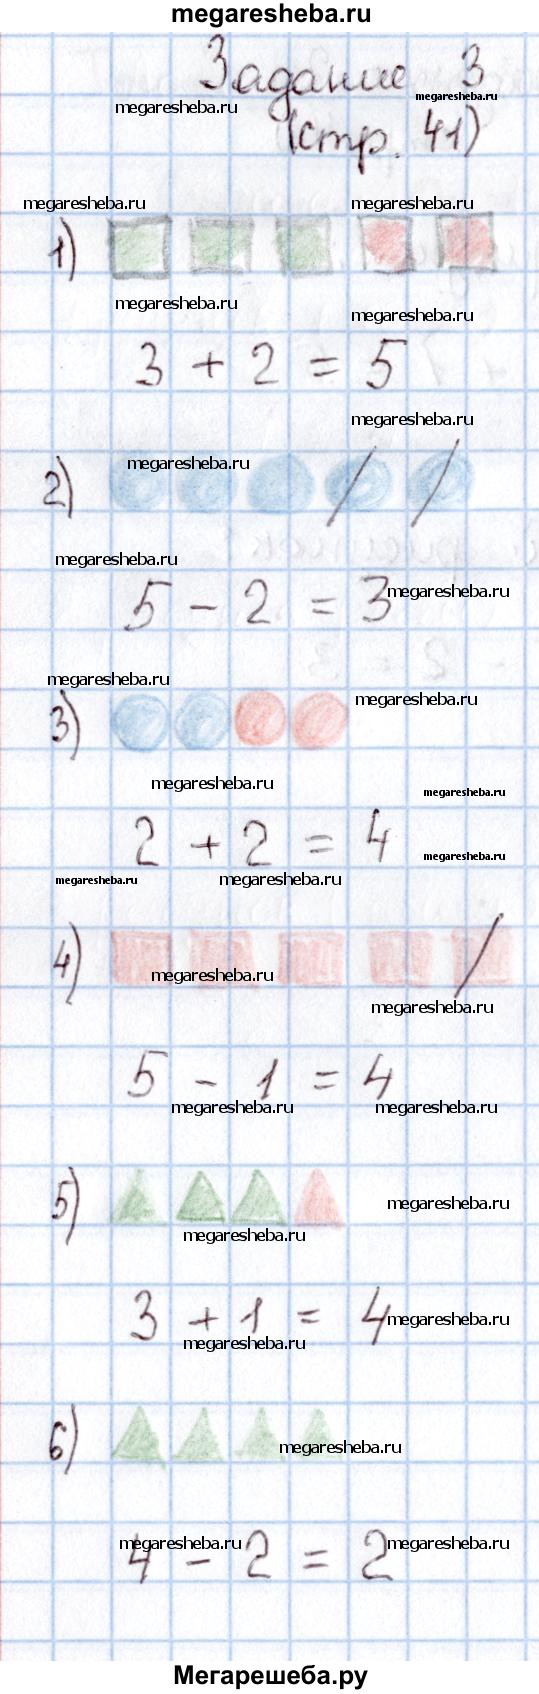 megaresheba.ru
Задание 3
megaresheba.ru megaresheba.ru
(стр. 41)
megaresheba.ru megaresheba.ru
1)
megaresheba.ru megaresheba.ru
3 + 2 = 5
megaresheba.ru
2) megaresheba.ru
megaresheba.ru
5 - 2 = 3 megaresheba.ru
megaresheba.ru megaresheba.ru
3)
megaresheba.ru megaresheba.ru
2 + 2 = 4 megaresheba.ru
megaresheba.ru megaresheba.ru
4) megaresheba.ru
megaresheba.ru
5 - 1 = 4
megaresheba.ru megaresheba.ru
5) megaresheba.ru
megaresheba.ru
3 + 1 = 4 megaresheba.ru
megaresheba.ru
6) megaresheba.ru
megaresheba.ru megaresheba.ru
4 - 2 = 2
Мегарешеба.ру